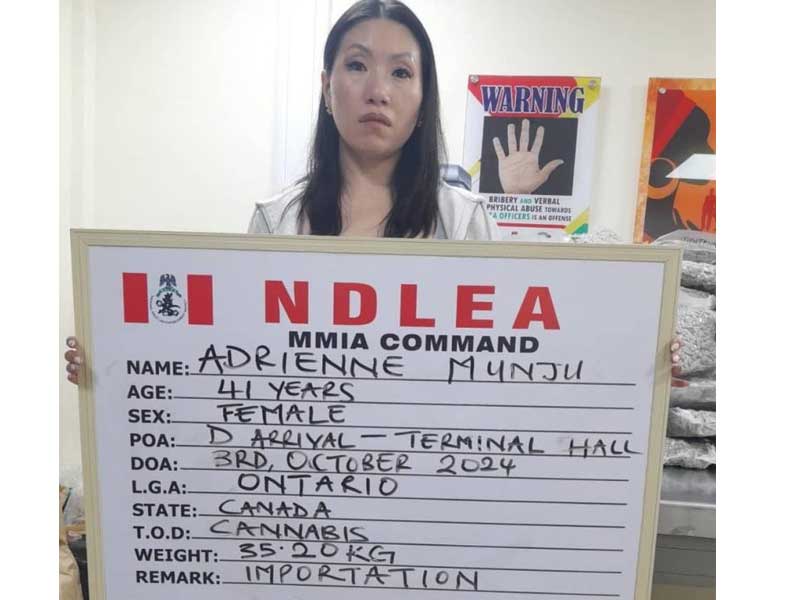 WARNING
BRIBERY AND VERBAL
PHYSICAL ABUSE TOWARDS
A OFFICERS IS AN OFFENSE
NDLEA
MMIA COMMAND
NAME: ADRIENNE MUNJU
AGE: 41 YEARS
SEX: FEMALE
POA: D ARRIVAL – TERMINAL HALL
DOA: 3RD, OCTOBER 2024
L.G.A: ONTARIO
STATE: CANADA
T.O.D: CANNABIS
WEIGHT: 35.20KG
REMARK: IMPORTATION